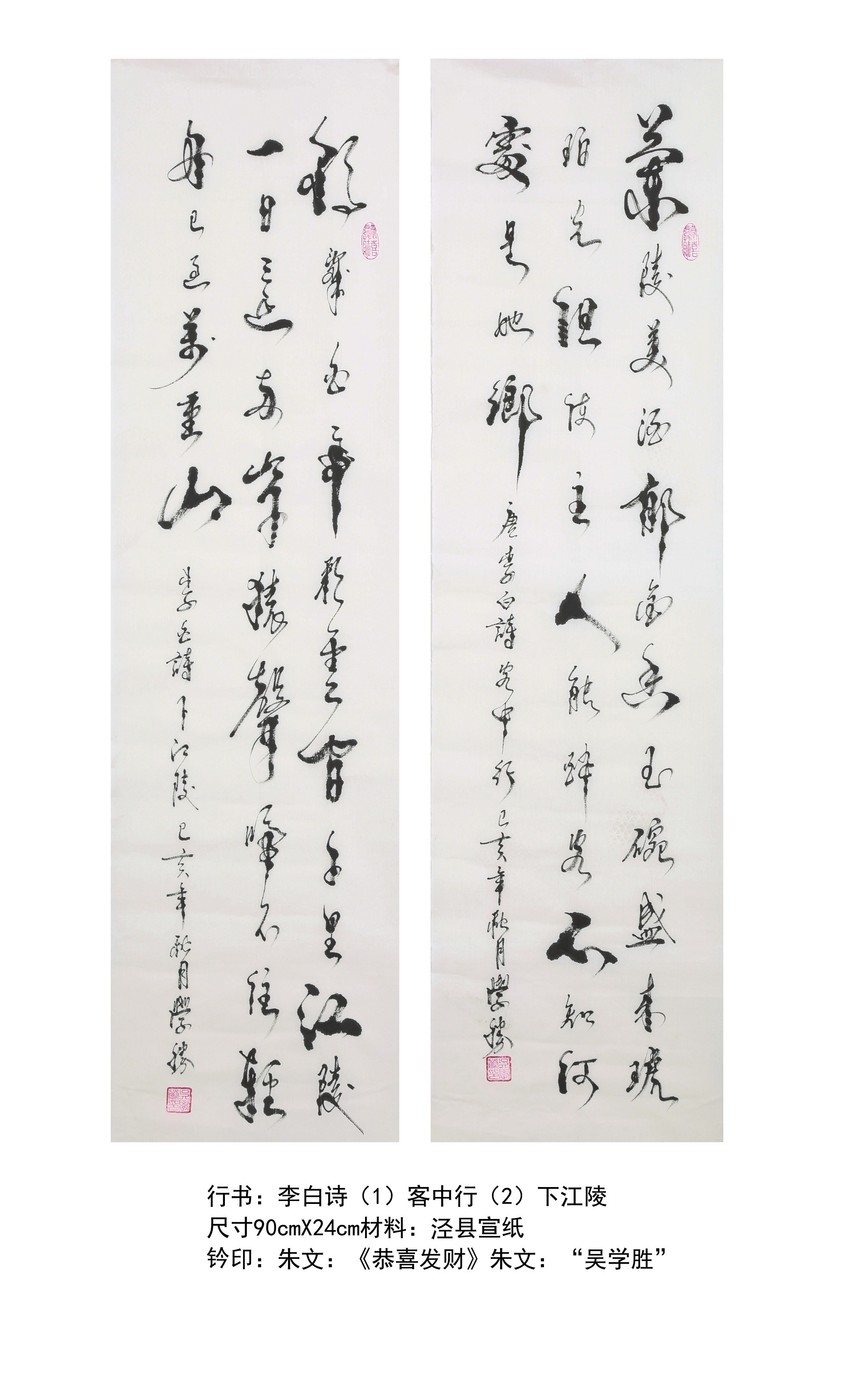 蘭陵美酒郁金香玉碗盛来琥
珀光但使主人能醉客不知何
處是她鄉 唐李白詩客中行己亥年秋月學勝
朝辭白帝彩雲間千里江陵
一日還两岸猿聲啼不住輕
舟已過萬重山 李白詩下江陵己亥年秋月學勝
行书：李白诗（1）客中行（2）下江陵
尺寸90cmX24cm材料：泾县宣纸
钤印：朱文：《恭喜发财》朱文：“吴学胜”